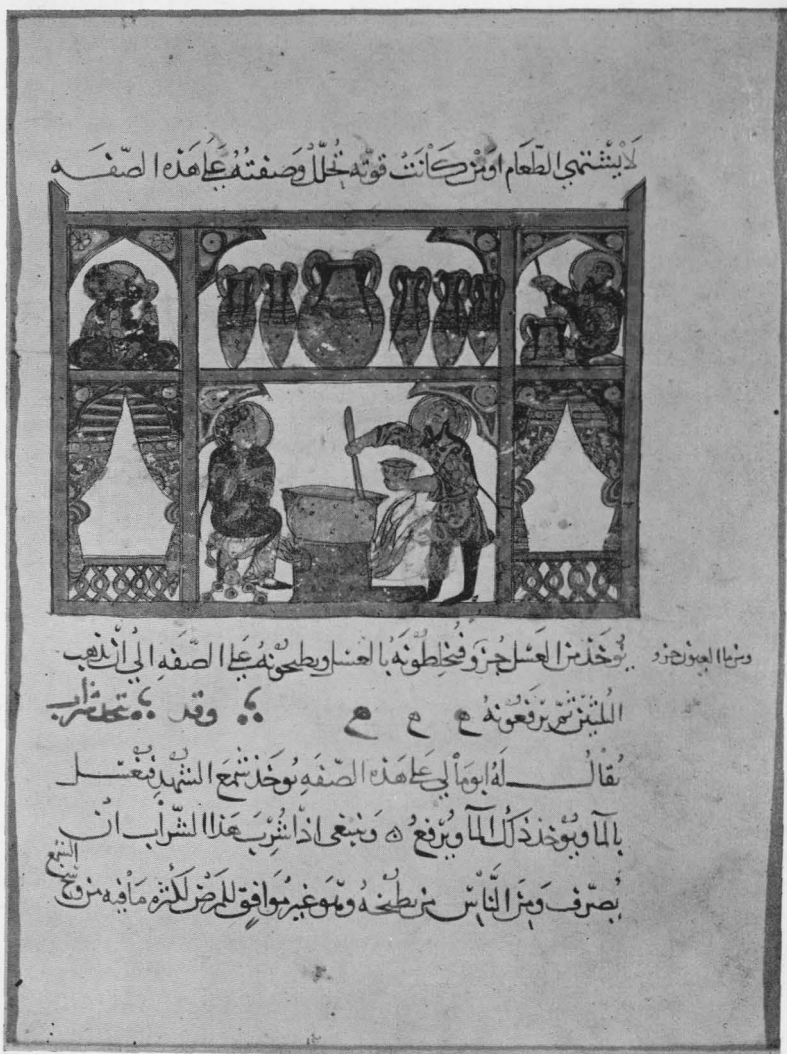 لا يشتهي الطعام او من كانت قوته تحلل وصفته على هذه الصفه
يؤخذ من العسل جزو فيخلطونه بالعسل ويطبخونه على الصفه الى ان يذهب
ومن ما العيون جزو
الثلثين ثم يرفعونه وقد يتخذ شراب
يقال له ابومالي على هذه الصفه يوخذ شمع الشهد فيغسل
بالما ويؤخذ ذلك الما ويرفع وينبغى اذا شرب هذا الشراب ان
يصرف ومن الناس من يطبخه وهو غير موافق للمرض لكثره ما فيه من وسخ
الشمع